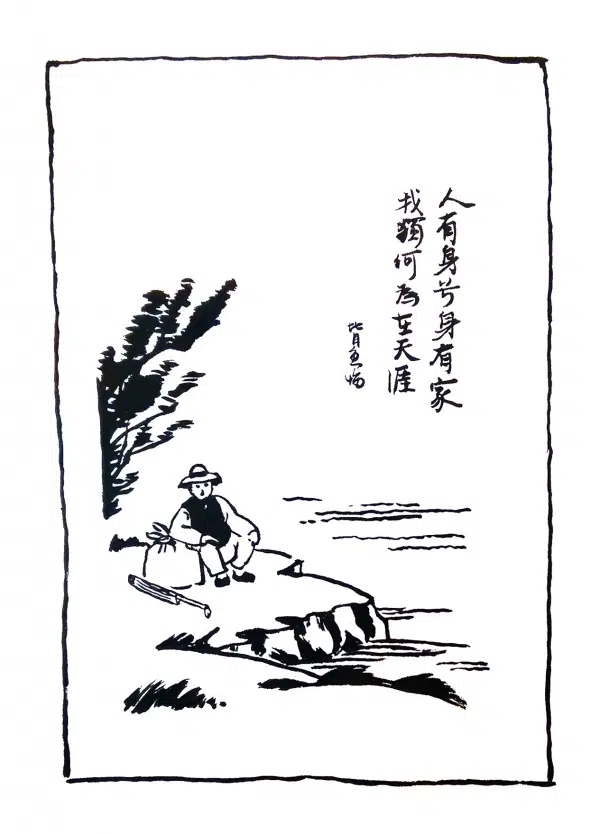 人有身兮身有家
我獨何為在天涯